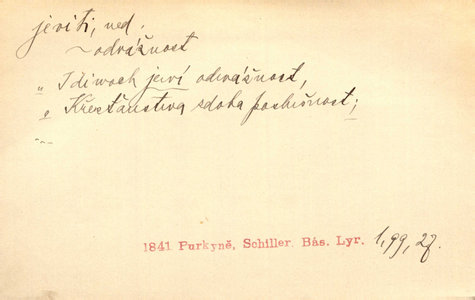 jeviti, ned.
~ odvážnost
„ I diwoch jeví odwážnost,
„ Křesťanstwa zdoba poslušnost;
„--
1841 Purkyně, Schiller. Bás. Lyr. 1,99, 27.